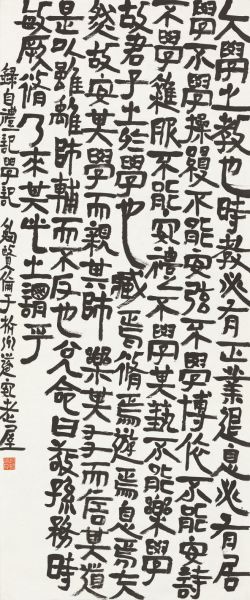 大學之教也時教必有正業退息必有居
學不學操縵不能安弦不學博依不能安詩
不學雜服不能安禮不學其埶不能樂學
故君子之於學也臧焉脩焉遊焉息焉夫
然故安其學而親其師樂其友而信其道
是以雖離師輔而不反也兌命曰敬孫務時
敏厥脩乃來其此之謂乎
錄自禮記學記 賢倫子杭州老屋